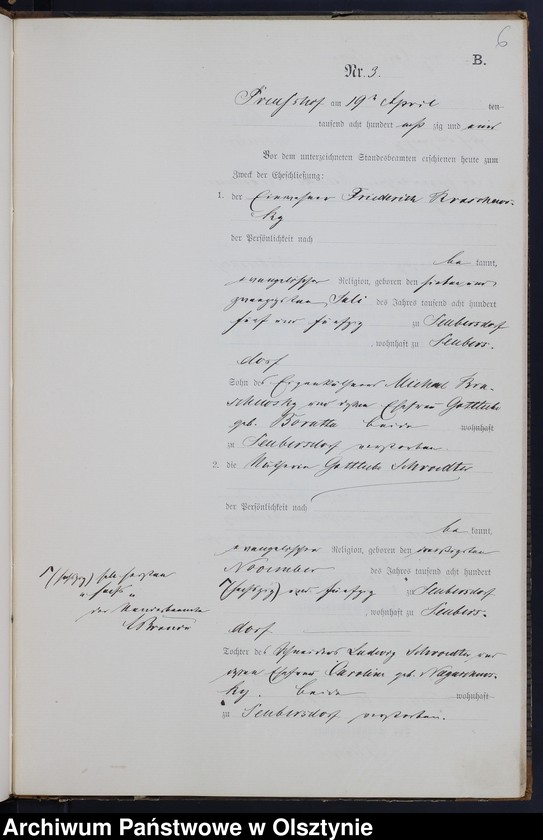 6
B.
Nr. 3.
Preußhof am 19ᵗ April ten
tausend acht hundert acht zig und eins
Vor dem unterzeichneten Standesbeamten erschienen heute zum
Zweck der Eheschließung:
1. der Einwohner Friederich Kraschews-
ky
der Persönlichkeit nach
be kannt,
evangelischer Religion, geboren den sieben und
zwanzigsten Juli des Jahres tausend acht hundert
fünf und fünfzig zu Seubersdorf
, wohnhaft zu Seubers-
dorf
Sohn des Eigenkäthners Michael Kra-
schewsky und dessen Ehefrau Gottliebe
geb. Boratta beide wohnhaft
zu Seubersdorf verstorben.
2. die Gottliebe Schroedter
der Persönlichkeit nach
be kannt,
evangelischer Religion, geboren den
November des Jahres tausend acht hundert
(sechszig) und fünfzig zu Seubersdorf
, wohnhaft zu Seubers-
dorf
Tochter des Schneiders Ludwig Schroedter und
dessen Ehefrau Caroline geb.
ky. beide wohnhaft
zu Seubersdorf verstorben.
(sechszig)
"sechs"
der Standesbeamte
Archiwum Państwowe w Olsztynie